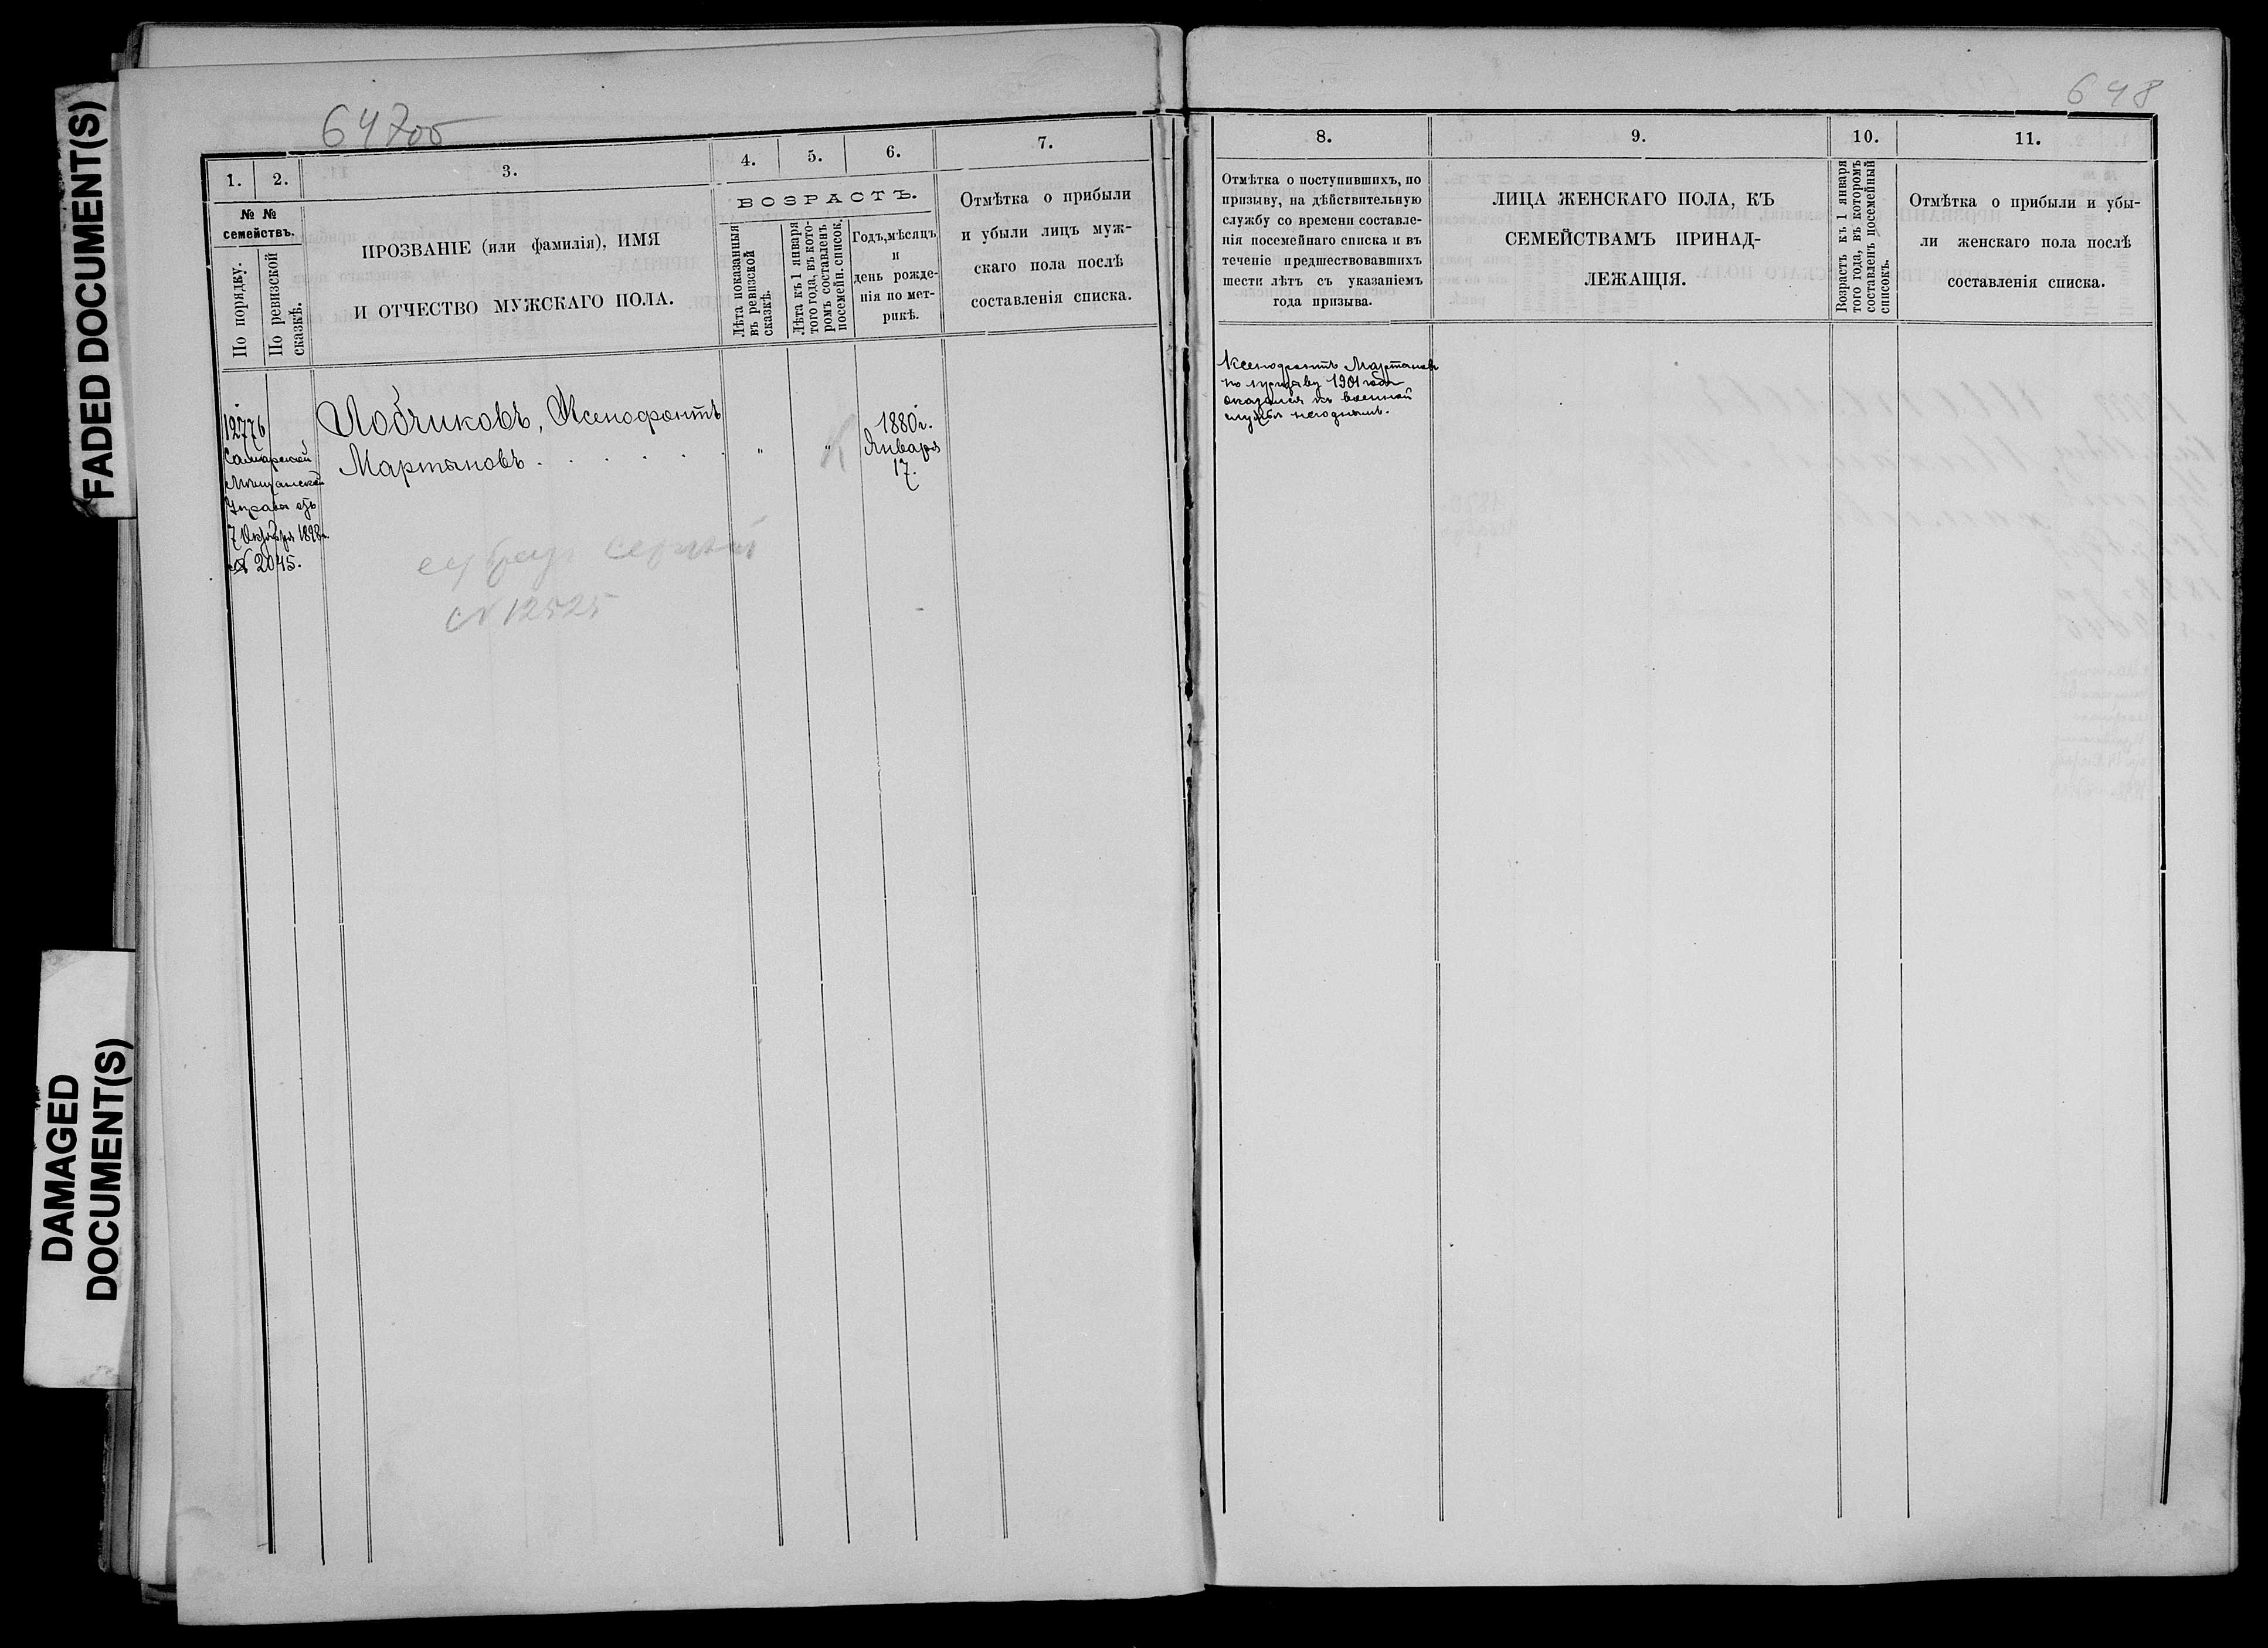 FADED DOCUMENT(S)
DAMAGED
DOCUMENT(S)
647об
1.
2.
3.
4.
5.
6.
7.
№ №
семействъ.
По порядку.
По ревизской
сказкѣ.
ПРОЗВАНІЕ (или фамилія), ИМЯ
И ОТЧЕСТВО МУЖСКАГО ПОЛА.
ВОЗРАСТЪ.
Лѣта показанныя
въ ревизской
сказкѣ.
Лѣта къ 1 января
того года, въ кото-
ромъ составленъ
посемейн. список.
Годъ, мѣсяцъ
и
день рожде-
нія по мет-
рикѣ.
Отмѣтка о прибыли
и убыли лицъ муж-
скаго пола послѣ
составленія списка.
12776
Самарской
Мѣщанской
Управы отъ
7 Октября 1898 г.
№ 2045.
Лобчиковъ, Ксенофонтъ
Мартыновъ . . . . . .
"
"
1880 г.
Января
17.
Сергѣй
№ 12525
648
8.
9.
10.
11.
Отмѣтка о поступившихъ, по
призыву, на дѣйствительную
службу со времени составле-
нія посемейнаго списка и въ
теченіе предшествовавшихъ
шести лѣтъ съ указаніемъ
года призыва.
ЛИЦА ЖЕНСКАГО ПОЛА, КЪ
СЕМЕЙСТВАМЪ ПРИНАД-
ЛЕЖАЩІЯ.
Возрастъ къ 1 января
того года, въ которомъ
составленъ посемейный
списокъ.
Отмѣтка о прибыли и убы-
ли женскаго пола послѣ
составленія списка.
Ксенофонтъ Мартыновъ
по призыву 1901 года
оказался къ военной
службѣ негоднымъ.